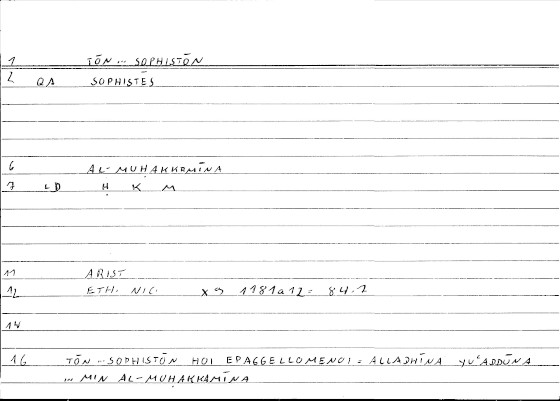 1 TŌN ... SOPHISTŌN
2 QA SOPHISTĒS
6 AL-MUḤAKKAMĪNA
7 LD Ḥ K M
11 ARIST
12 ETH. NIC. X 9 1181a12 = 84.1
14
16 TŌN ... SOPHISTŌN HOI EPAGGELLOMENOI = ALLADHĪNA YUʿADDŪNA
... MIN AL-MUḤAKKAMĪNA